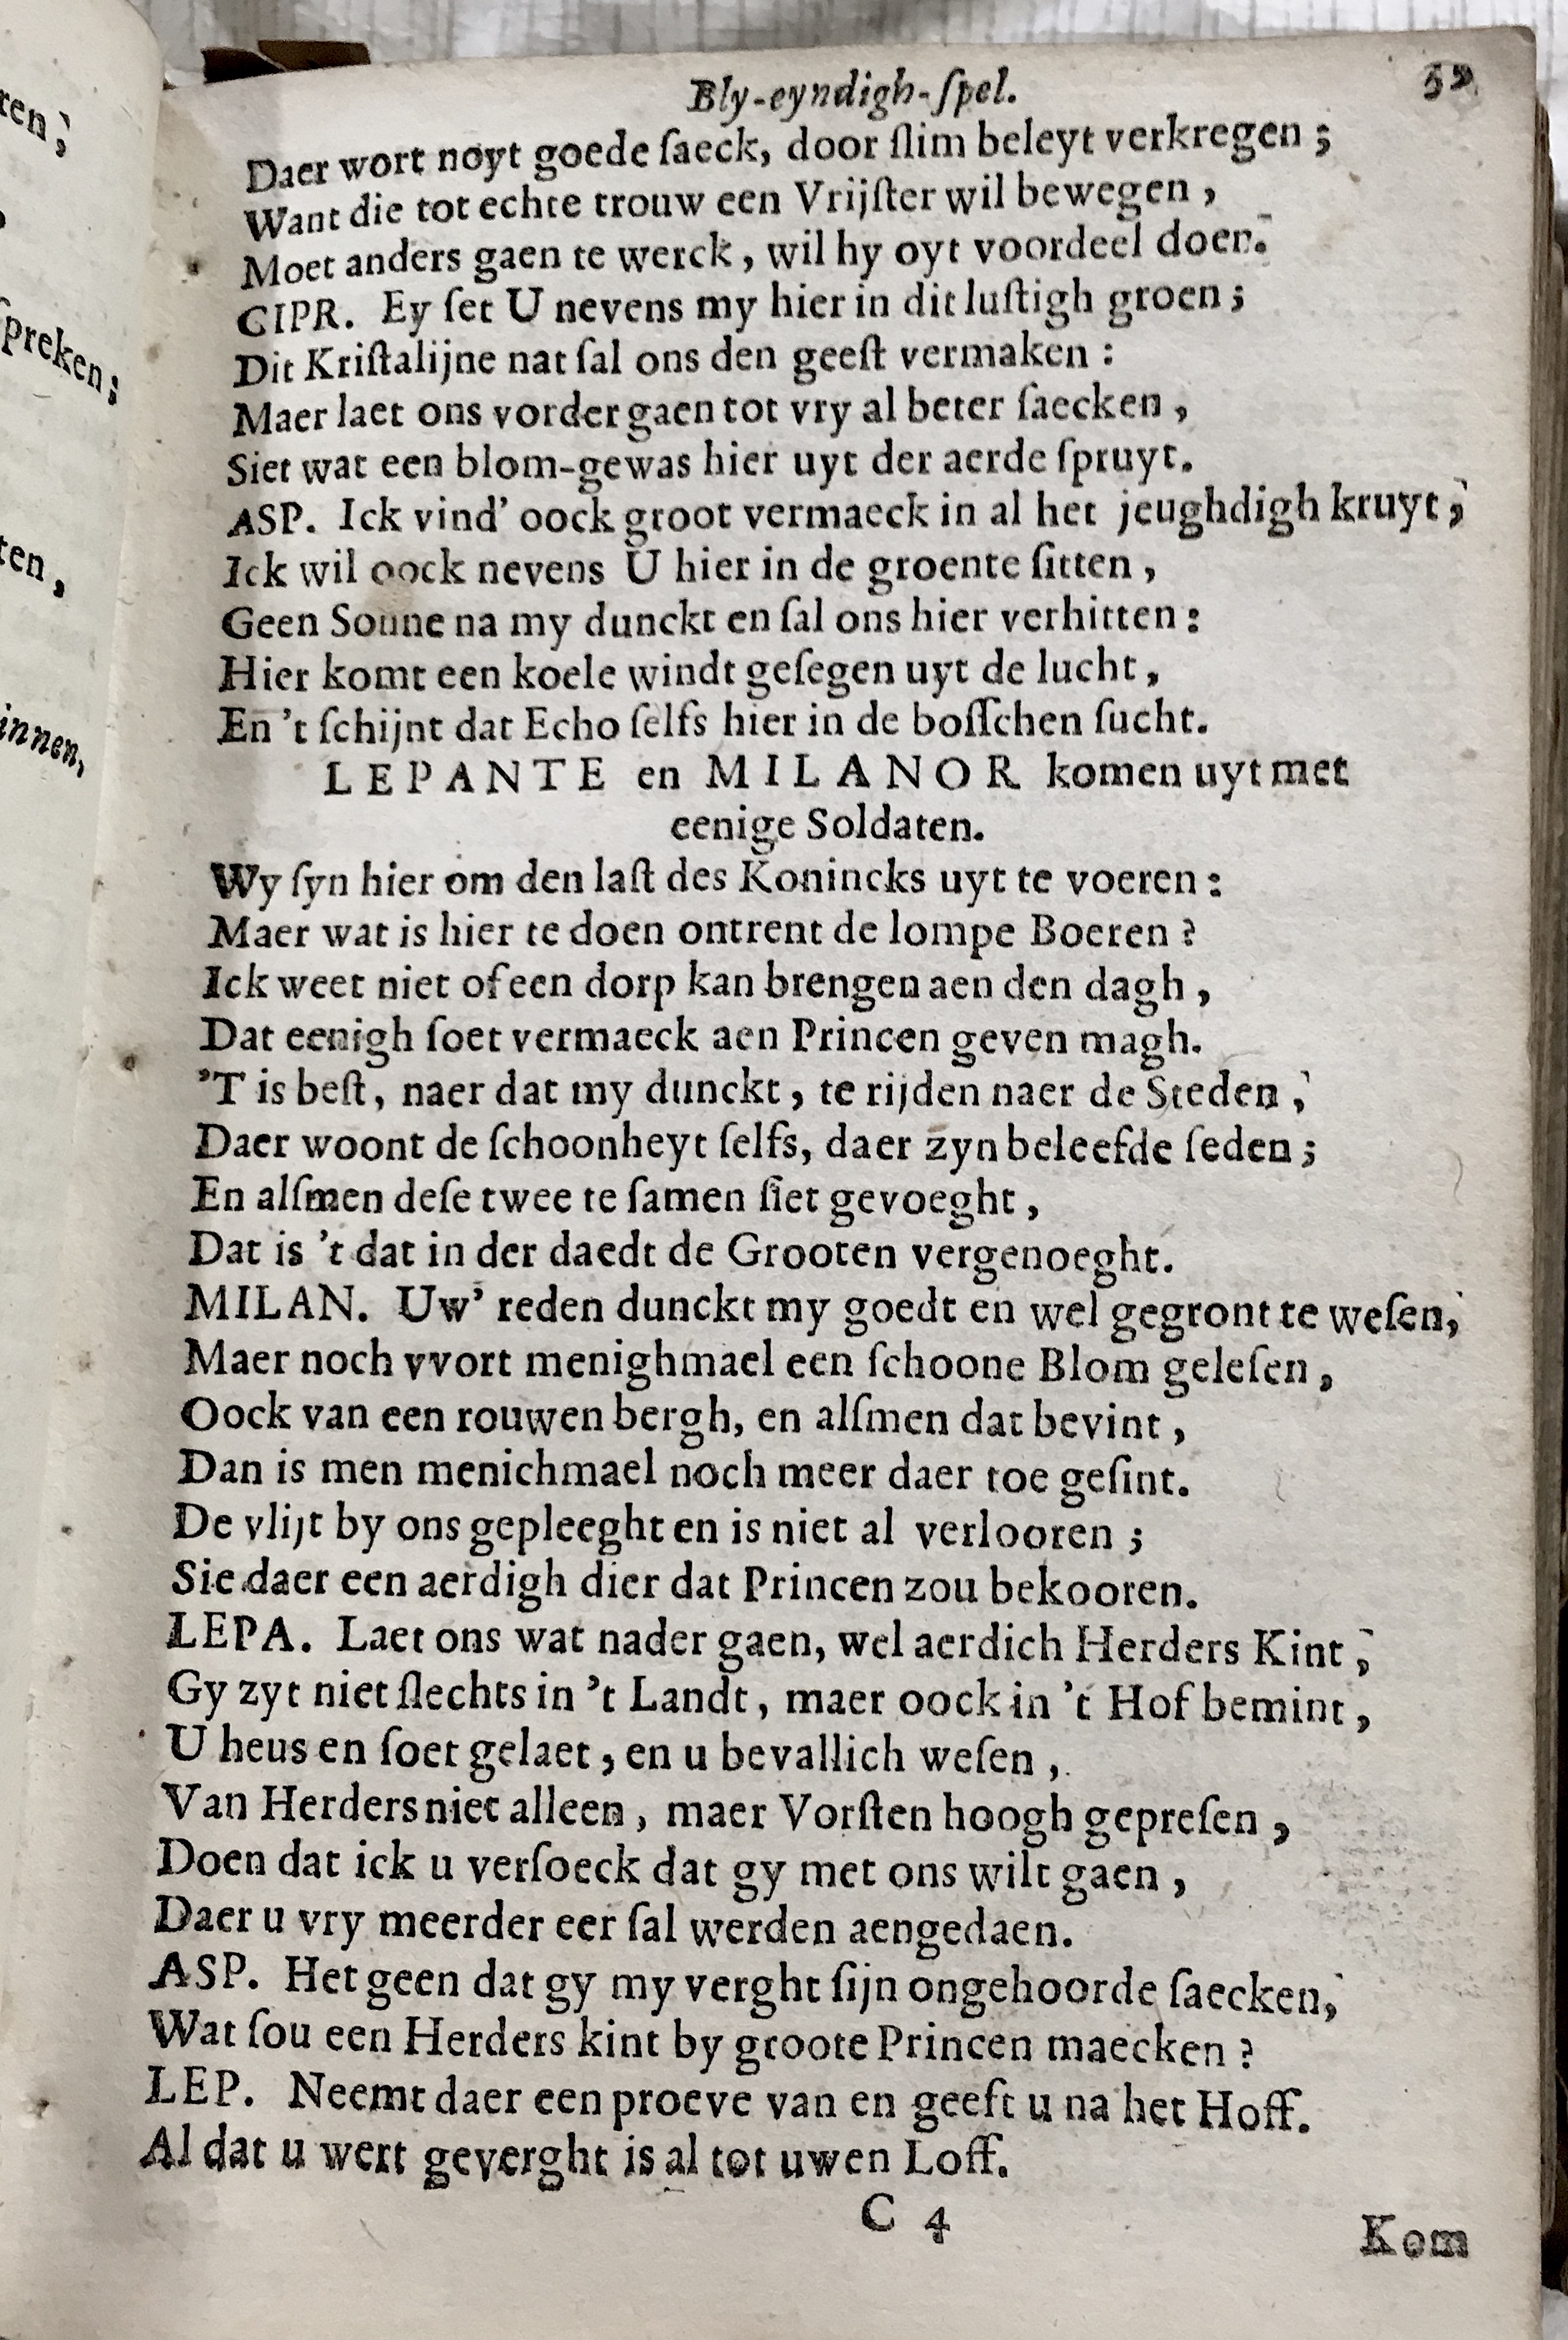 ren,
preken;
ten,
innen,
Bly-eyndigh-ſpel.
Daer wort noyt goede ſaeck, door ſlim beleyt verkregen;
Want die tot echte trouw een Vrijſter wil bewegen,
Moet anders gaen te werck, wil hy oyt voordeel doen.
CIPR. Ey ſet U nevens my hier in dit luſtigh groen;
Dit Kriſtalijne nat ſal ons den geeſt vermaken:
Maer laet ons vorder gaen tot vry al beter ſaecken,
Siet wat een blom-gewas hier uyt der aerde ſpruyt.
ASP. Ick vind' oock groot vermaeck in al het jeughdigh kruyt,
Ick wil oock nevens U hier in de groente ſitten,
Geen Sonne na my dunckt en ſal ons hier verhitten:
Hier komt een koele windt geſegen uyt de lucht,
En 't ſchijnt dat Echo ſelfs hier in de boſſchen ſucht.
LEPANTE en MILANOR komen uyt met
eenige Soldaten.
Wy ſyn hier om den laſt des Konincks uyt te voeren:
Maer wat is hier te doen ontrent de lompe Boeren?
Ick weet niet of een dorp kan brengen aen den dagh,
Dat eenigh ſoet vermaeck aen Princen geven magh.
'T is beſt, naer dat my dunckt, te rijden naer de Steden,
Daer woont de ſchoonheyt ſelfs, daer zyn beleefde ſeden;
En alſmen deſe twee te ſamen ſiet gevoeght,
Dat is 't dat in der daedt de Grooten vergenoeght.
MILAN. Uw' reden dunckt my goedt en wel gegront te weſen,
Maer noch vvort menighmael een ſchoone Blom geleſen,
Oock van een rouwen bergh, en alſmen dat bevint,
Dan is men menichmael noch meer daer toe geſint.
De vlijt by ons gepleeght en is niet al verlooren;
Sie daer een aerdigh dier dat Princen zou bekooren.
LEPA. Laet ons wat nader gaen, wel aerdich Herders Kint,
Gy zyt niet ſlechts in 't Landt, maer oock in 't Hof bemint,
U heus en ſoet gelaet, en u bevallich weſen,
Van Herders niet alleen, maer Vorſten hoogh gepreſen,
Doen dat ick u verſoeck dat gy met ons wilt gaen,
Daer u vry meerder eer ſal werden aengedaen.
ASP. Het geen dat gy my verght ſijn ongehoorde ſaecken,
Wat ſou een Herders kint by groote Princen maecken?
LEP. Neemt daer een proeve van en geeft u na het Hoff.
Al dat u wert geverght is al tot uwen Loff.
C 4
Kom